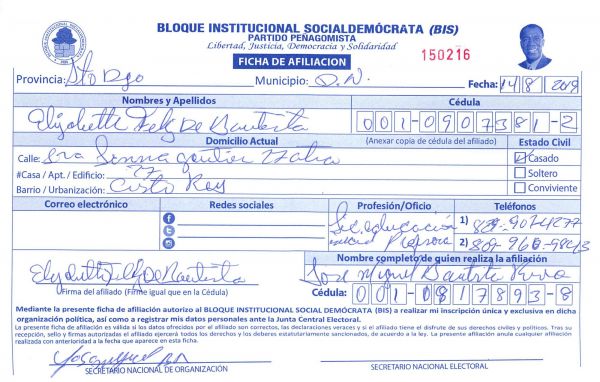 BLOQUE INSTITUCIONAL SOCIALDEMÓCRATA (BIS)
PARTIDO PEÑAGOMISTA
Libertad, Justicia, Democracia y Solidaridad
FICHA DE AFILIACION
150216
Provincia: Sto Dgo Municipio: D.N. Fecha: 14/8/2019
Nombres y Apellidos Cédula
Elizabeth Feliz De Bautista 001-0907381-2
Domicilio Actual (Anexar copia de cédula del afiliado) Estado Civil
Calle: Casado
#Casa / Apt. / Edificio: Soltero
Barrio / Urbanización: Cristo Rey Conviviente
Correo electrónico Redes sociales Profesión/Oficio Teléfonos
Lic. educación 1) 829-902-4277
Profesora 2)
Nombre completo de quien realiza la afiliación
Elizabeth Feliz De Bautista Jose Miguel Bautista
Firma del afiliado (Firme igual que en la Cédula) Cédula: 001-0817893-8
Mediante la presente ficha de afiliación autorizo al BLOQUE INSTITUCIONAL SOCIAL DEMÓCRATA (BIS) a realizar mi inscripción única y exclusiva en dicha
organización política, así como a registrar mis datos personales ante la Junta Central Electoral.
La presente ficha de afiliación será válida si los datos ofrecidos por el afiliado son correctos, las declaraciones veraces y si el afiliado tiene el disfrute de sus derechos civiles y políticos. Tras su
recepción, sello y firmas autorizadas el afiliado ejercerá todos los derechos y los deberes estatutariamente sancionados, de acuerdo a la ley. La presente afiliación anula cualquier afiliación
realizada con anterioridad a la fecha que aparece en esta ficha.
SECRETARIO NACIONAL DE ORGANIZACIÓN SECRETARIO NACIONAL ELECTORAL